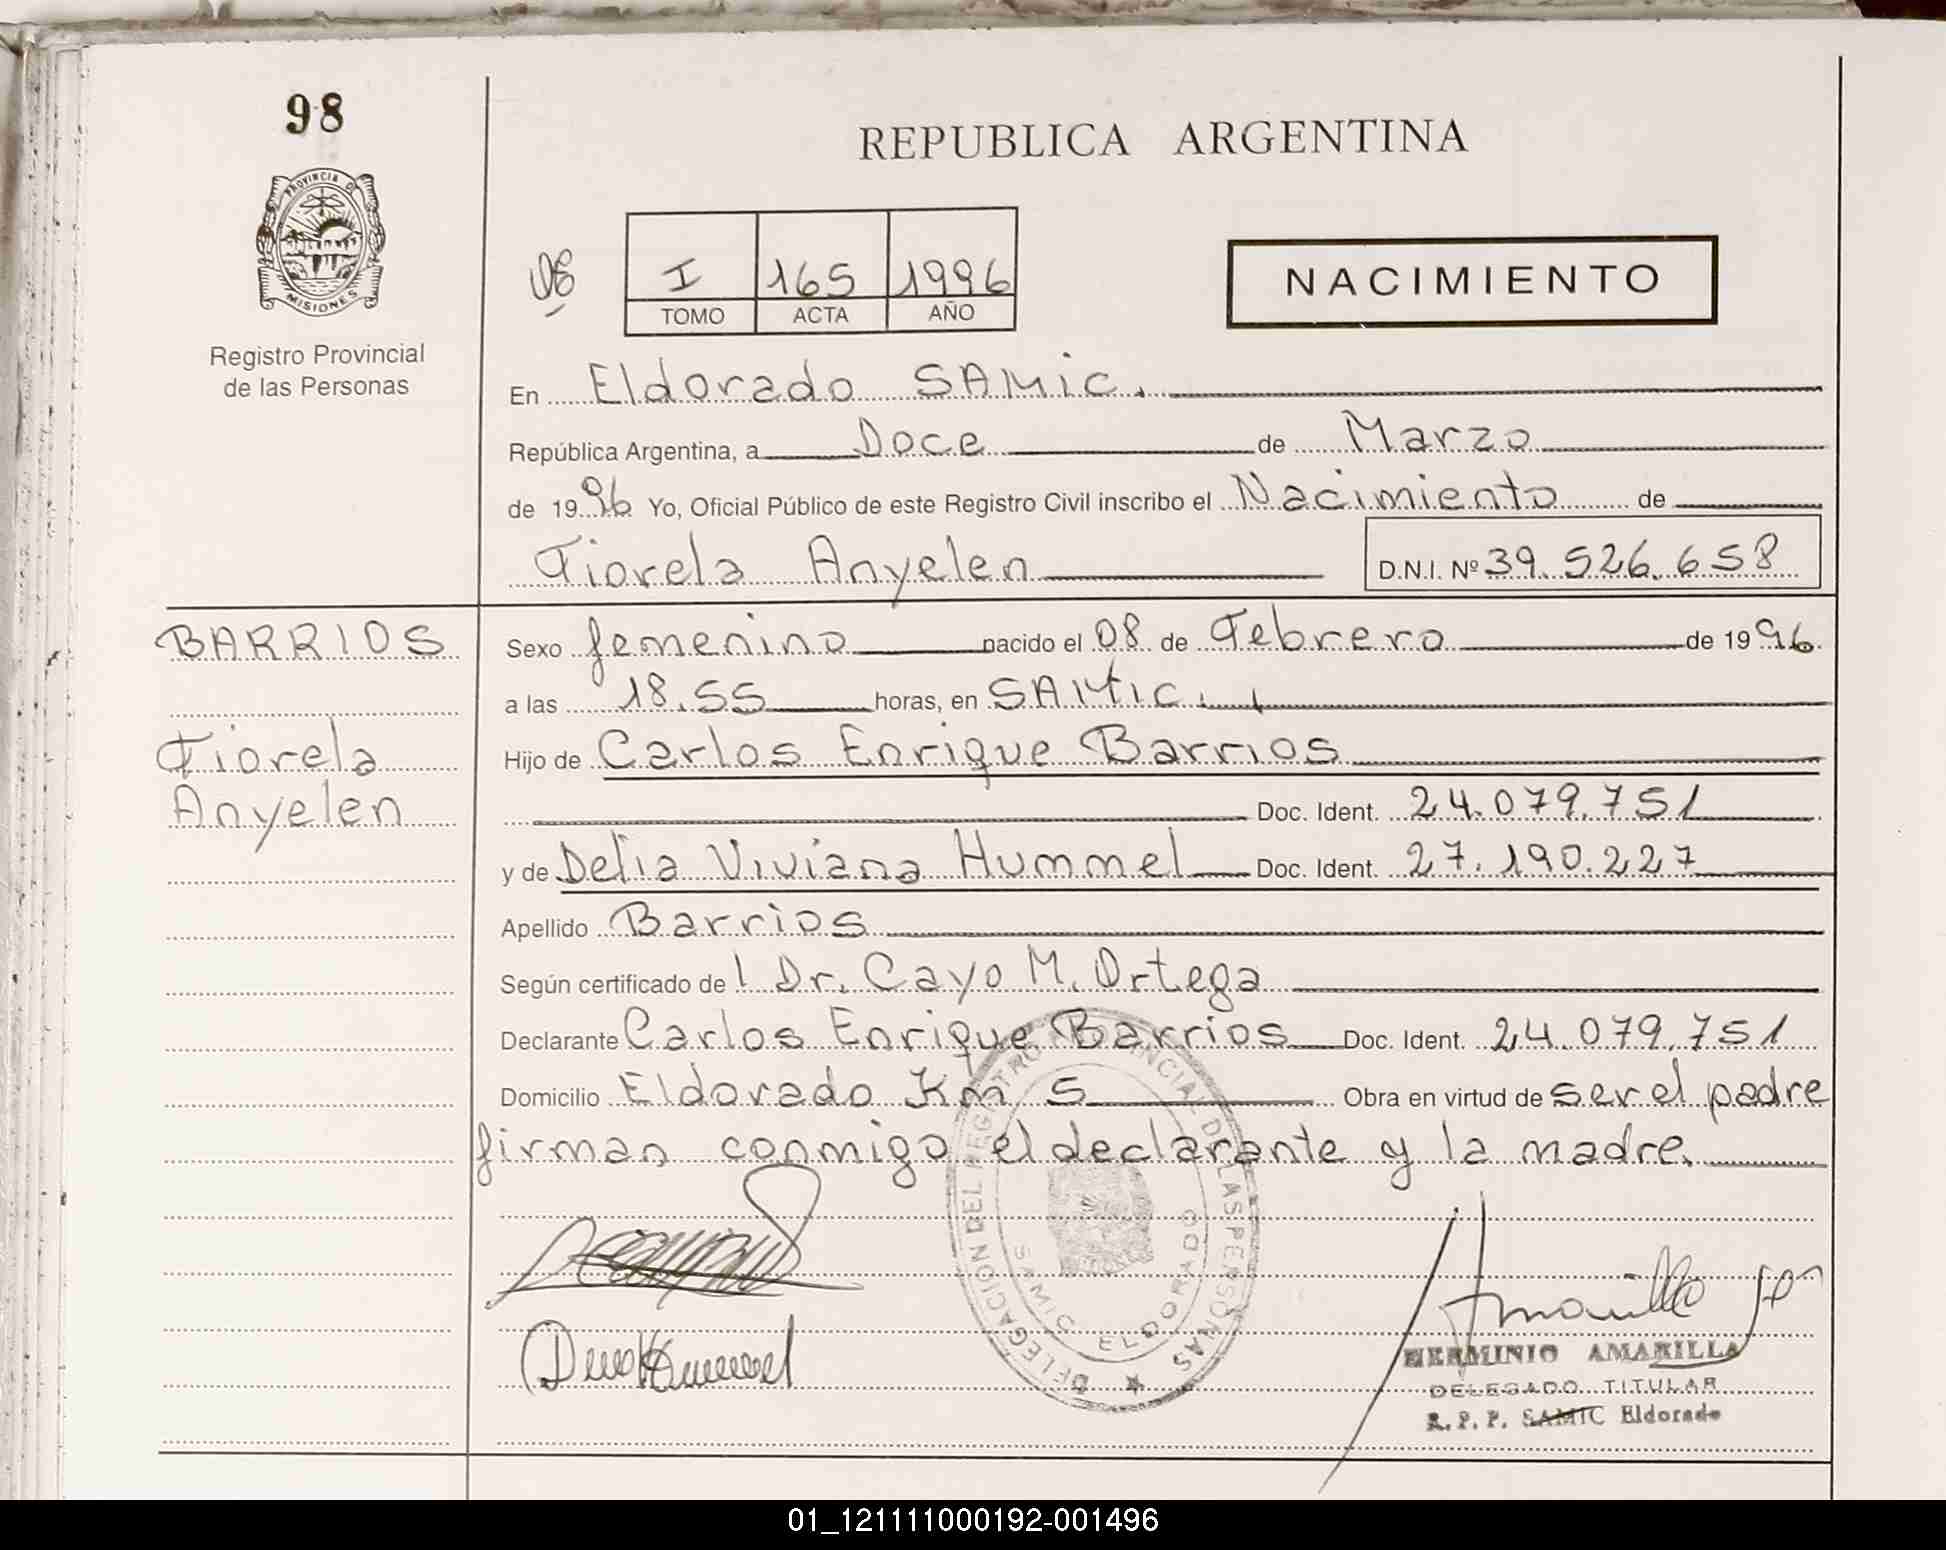 98
REPUBLICA ARGENTINA
PROVINCIA DE
MISIONES
Registro Provincial
de las Personas
08
I 165 1996
TOMO ACTA AÑO
NACIMIENTO
En Eldorado SAMIC.
República Argentina, a Doce de Marzo
de 1996 Yo, Oficial Público de este Registro Civil inscribo el Nacimiento de
Fiorela Anyelen D.N.I. Nº 39.526.658
BARRIOS
Fiorela
Anyelen
Sexo femenino nacido el 08 de Febrero de 1996
a las 18.55 horas, en SAMIC.
Hijo de Carlos Enrique Barrios
Doc. Ident. 24.079.751
y de Delia Viviana Hummel Doc. Ident. 27.190.227
Apellido Barrios
Según certificado de l Dr. Cayo M. Ortega
Declarante Carlos Enrique Barrios Doc. Ident. 24.079.751
Domicilio Eldorado Km 5 Obra en virtud de ser el padre
firman conmigo el declarante y la madre.
DELEGACION DEL REGISTRO PROVINCIAL DE LAS PERSONAS
SAMIC ELDORADO
HERMINIO AMARILLA
DELEGADO TITULAR
R. P. P. SAMIC Eldorado
01_121111000192-001496